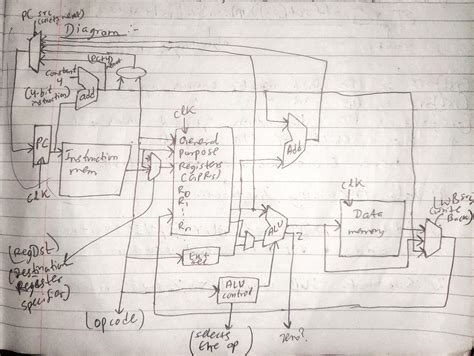 PC src
Diagram :-
constant
4
(4-bit
instruction)
add
PC
CLK
Instruction
mem
CLK
General
Purpose
Registers
(GPRs)
R0
R1
Rn
Add
ALU
Z
CLK
Data
memory
(WBSrc
Write
Back)
(RegDst)
(Destination
Register
Specifier)
Ext
ALU
control
(opcode)
(selects
the op)
zero?